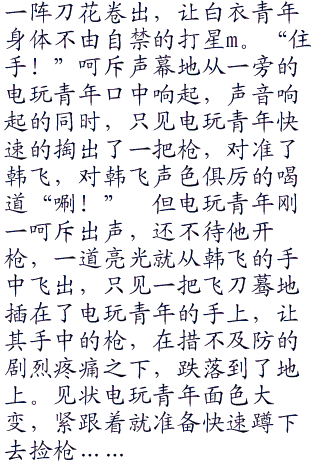 一阵刀花卷出，让白衣青年
身体不由自禁的打星m。“住
手！”呵斥声幕地从一旁的
电玩青年口中响起，声音响
起的同时，只见电玩青年快
速的掏出了一把枪，对准了
韩飞，对韩飞声色俱厉的喝
道“唰！” 但电玩青年刚
一呵斥出声，还不待他开
枪，一道亮光就从韩飞的手
中飞出，只见一把飞刀蓦地
插在了电玩青年的手上，让
其手中的枪，在措不及防的
剧烈疼痛之下，跌落到了地
上。见状电玩青年面色大
变，紧跟着就准备快速蹲下
去捡枪……